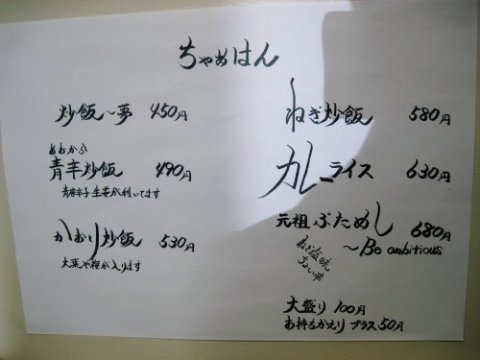 ちゃあはん
炒飯~夢 450円
あおから
青辛炒飯 490円
青唐辛子生姜が利いてます
かおり炒飯 530円
大葉や桜が入ります
ねぎ炒飯 580円
カレーライス 630円
元祖ぶためし 680円
~Bo ambitious
ねぎ塩味
ちょい辛
大盛り 100円
お持ちかえり プラス50円